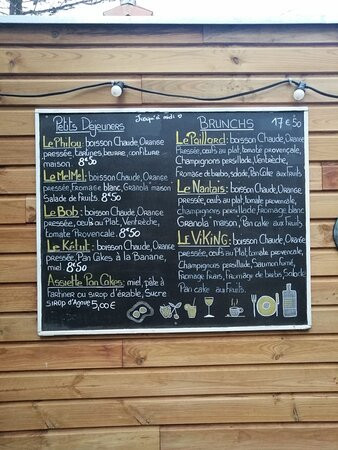 Petits Dejeuners
Jusqu'à midi
Le Philou: boisson Chaude, Orange
pressée, tartines beurre, confiture
maison. 8€50
Le MelMel: boisson Chaude, Orange
pressée, fromage blanc, Granola maison
Salade de fruits. 8€50
Le Bob: boisson Chaude, Orange
pressée, œufs au Plat, Ventrèche,
tomate Provençale. 8€50
Le Kélut: boisson Chaude, Orange
pressée, Pan Cakes à la Banane,
miel. 8€50
Assiette Pan Cakes: miel, pâte à
tartiner ou sirop d'érable, Sucre
sirop d'Agave 5,00€
Brunchs 17€50
Le Paillard: boisson Chaude, Orange
Pressée, œufs au plat, tomate provençale,
Champignons persillade, Ventrèche,
Fromage de brebis, salade Pan Cake aux fruits
Le Nantais: boisson Chaude, Orange
pressée, œufs au plat, tomate provençale,
champignons persillade, fromage blanc
Granola maison, Pan cake aux fruits.
Le Viking: boisson Chaude, Orange
pressée, œufs au Plat, tomate Provençale,
Champignons persillade, Saumon fumé,
fromage frais, fromage de brebis, Salade
Pan cake aux fruits.